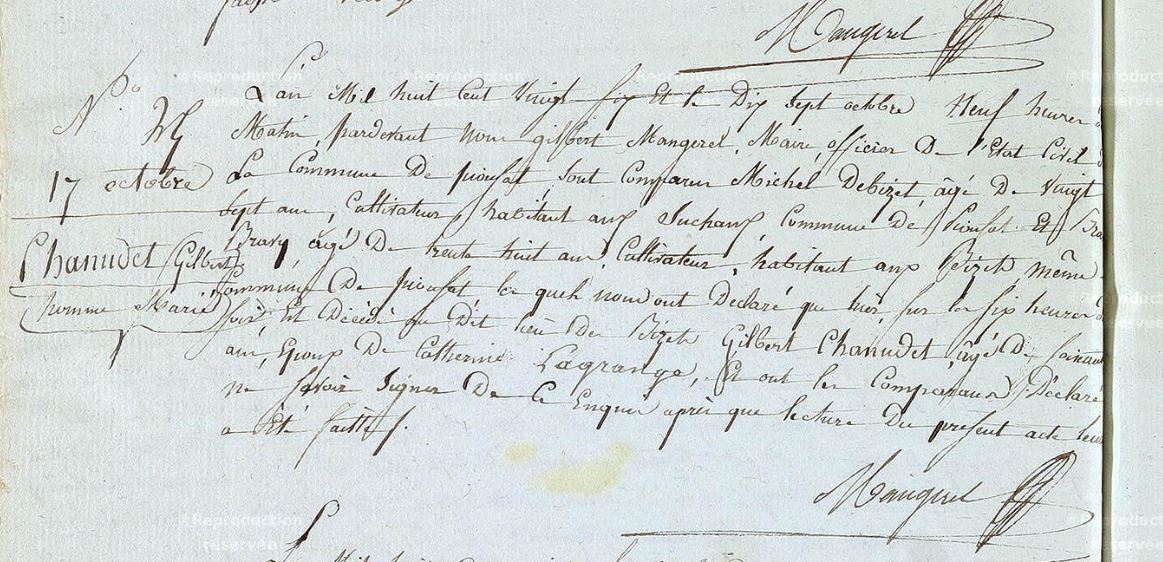 Maugerel
No
17 octobre
Chanudet Gilbert
homme Marié
L'an Mil huit Cent Vingt six Et le Dix sept octobre Neuf heures
Matin, pardevant nous gilbert Mangerel, Maire, officier De l'Etat Civil
La Commune De pionsat, sont Comparus Michel Debizet, âgé De Vingt
sept ans, Cultivateur, habitant aux Suchaux, Commune De Pionsat Et
Bravy, âgé De trente huit ans, Cultivateur, habitant aux Bizets même
Commune De pionsat les quels nous ont Declaré que hier, sur les six heures
soir, Est Décédé au Dit lieu Des Bizets Gilbert Chanudet, âgé De
ans, Epoux De Catherine Lagrange, Et ont les Comparans Déclaré
ne savoir signer De Ce Enquis après que lecture Du présent acte leur
a Eté faitte
Maugerel
L'an Mil huit Cent
© Reproduction
réservée